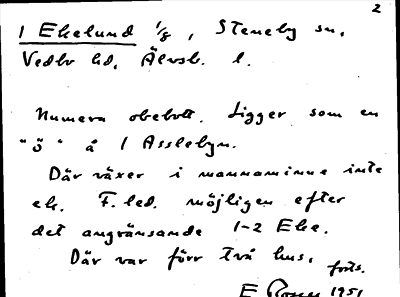 2
1 Ekelund 1/8, Steneby sn.
Vedbo hd. Älvsb. l.
Numera obebott. Ligger som en
"ö" å 1 Asslebyn.
Där växer i mannaminne inte
ek. F. led. möjligen efter
det angränsande 1-2 Eke.
Där var förr två hus.
forts.
E 1951